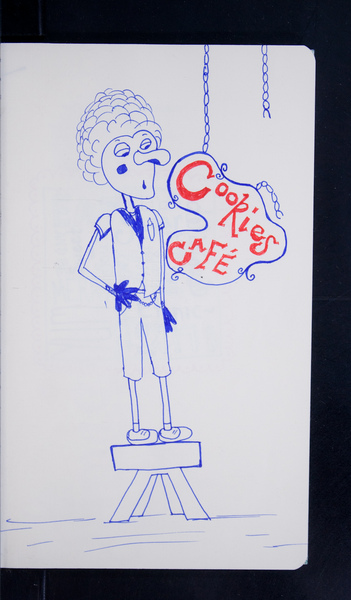 Cookies
CAFÉ